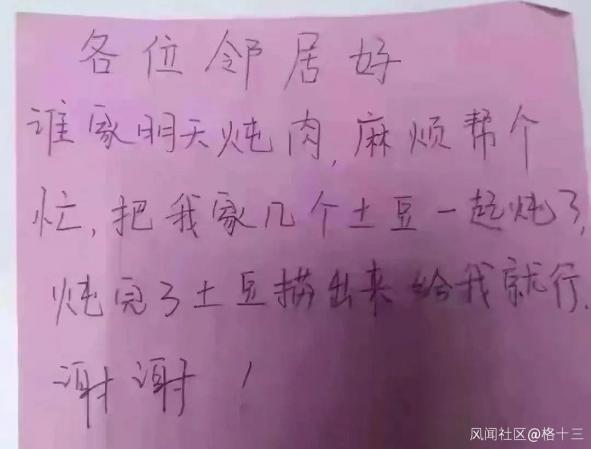 各位邻居好
谁家明天炖肉,麻烦帮个
忙,把我家几个土豆一起炖了,
炖完了土豆捞出来给我就行.
谢谢!
风闻社区@格十三